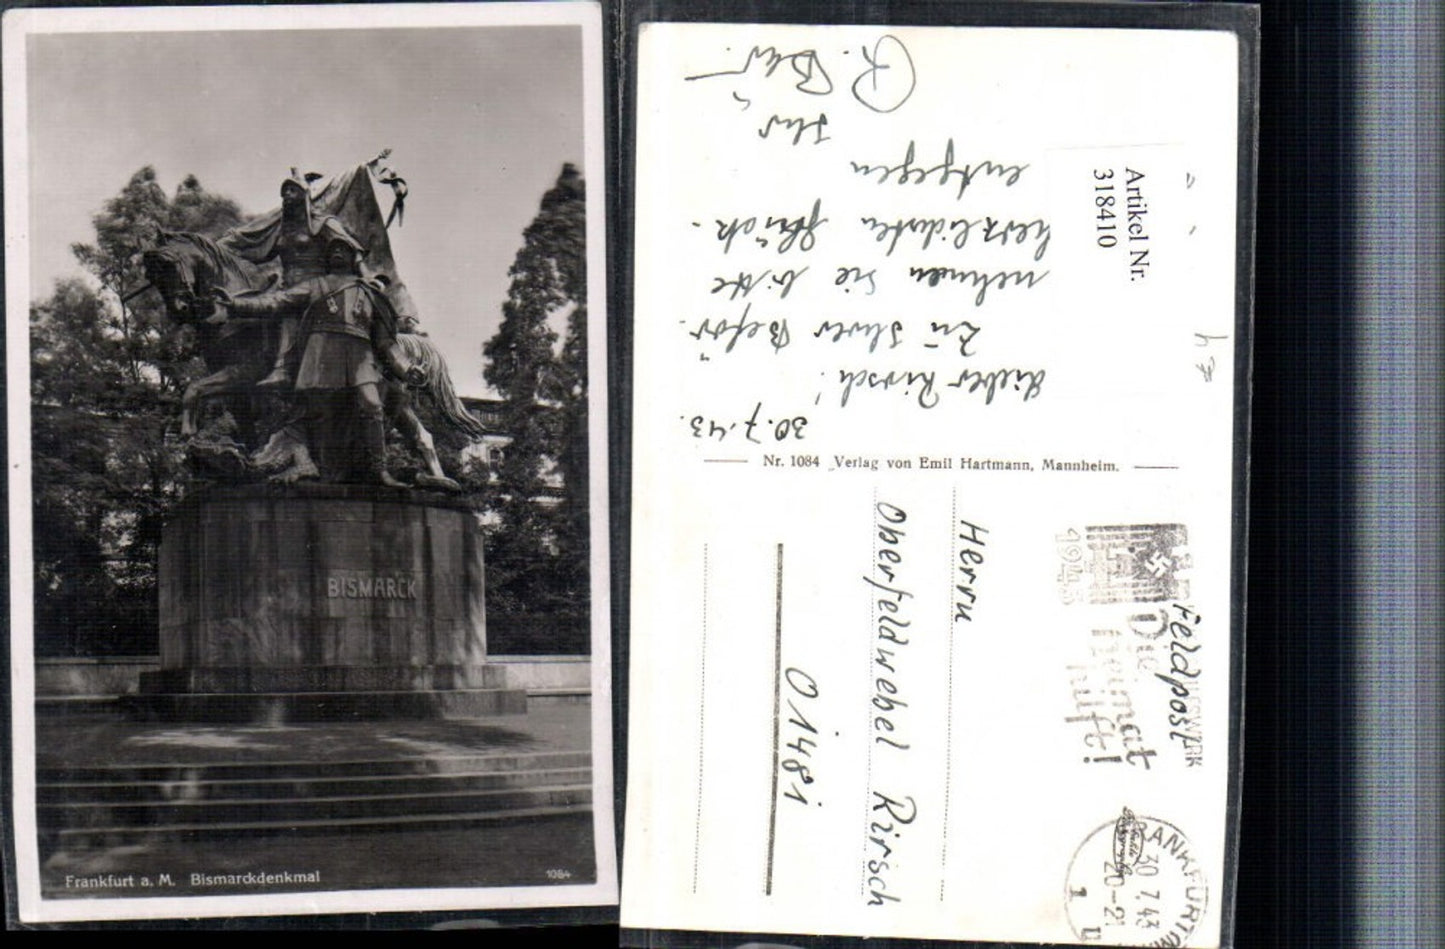 BISMARCK
Frankfurt a. M. Bismarckdenkmal
1084
Artikel Nr.
318410
30.7.43.
Lieber Kirsch!
Zu Ihrer Beför.
nehmen Sie bitte
herzlichsten Glück-
entgegen
Ihr
Nr. 1084 Verlag von Emil Hartmann, Mannheim.
1943
Die
Heimat
hilft!
Feldpost
FRANKFURT
30.7.43
20-21
Herrn
Oberfeldwebel Kirsch
01481